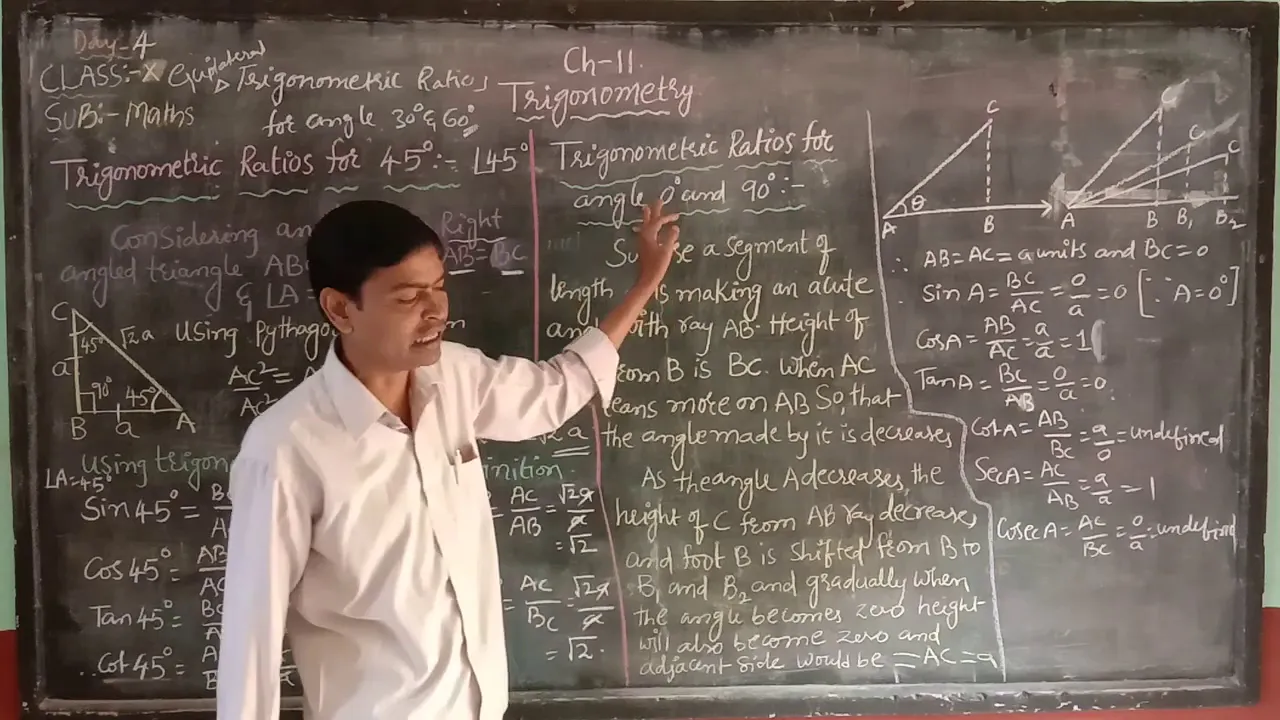 Day-4
CLASS:-X Equilateral Trigonometric Ratios
SUB:- Maths for angle 30° & 60°
Ch-11.
Trigonometry
Trigonometric Ratios for 45°:- ∟45°
Considering an Right
angled triangle AB AB=BC
& ∟A =
C
45° √2a
a
90° 45°
B a A
Using Pythago
AC²=
AC²=
√2a
Using trigon finition
∟A=45°
Sin45°=
= AC/AB = √2a/a
=√2
Cos45°= AB/AC
Tan45°=
= AC/BC = √2a/a
=√2.
Cot45°=
Trigonometric Ratios for
angle 0° and 90°:-
a segment of
length is making an acute
with ray AB. Height of
from B is BC. When AC
more on AB So, that
the angle made by it is decreases
As the angle A decreases, the
height of C from AB ray decreases
and foot B is shifted from B to
B₁ and B₂ and gradually when
the angle becomes zero height
will also become zero and
adjacent side would be = AC = a
C
θ
A B
C
C
C
A B B₁ B₂
∴ AB=AC=a units and BC=0
Sin A = BC/AC = 0/a = 0 [∵ A=0°]
Cos A = AB/AC = a/a = 1
Tan A = BC/AB = 0/a = 0.
Cot A = AB/BC = a/0 = undefined
Sec A = AC/AB = a/a = 1
Cosec A = AC/BC = 0/a = undefined